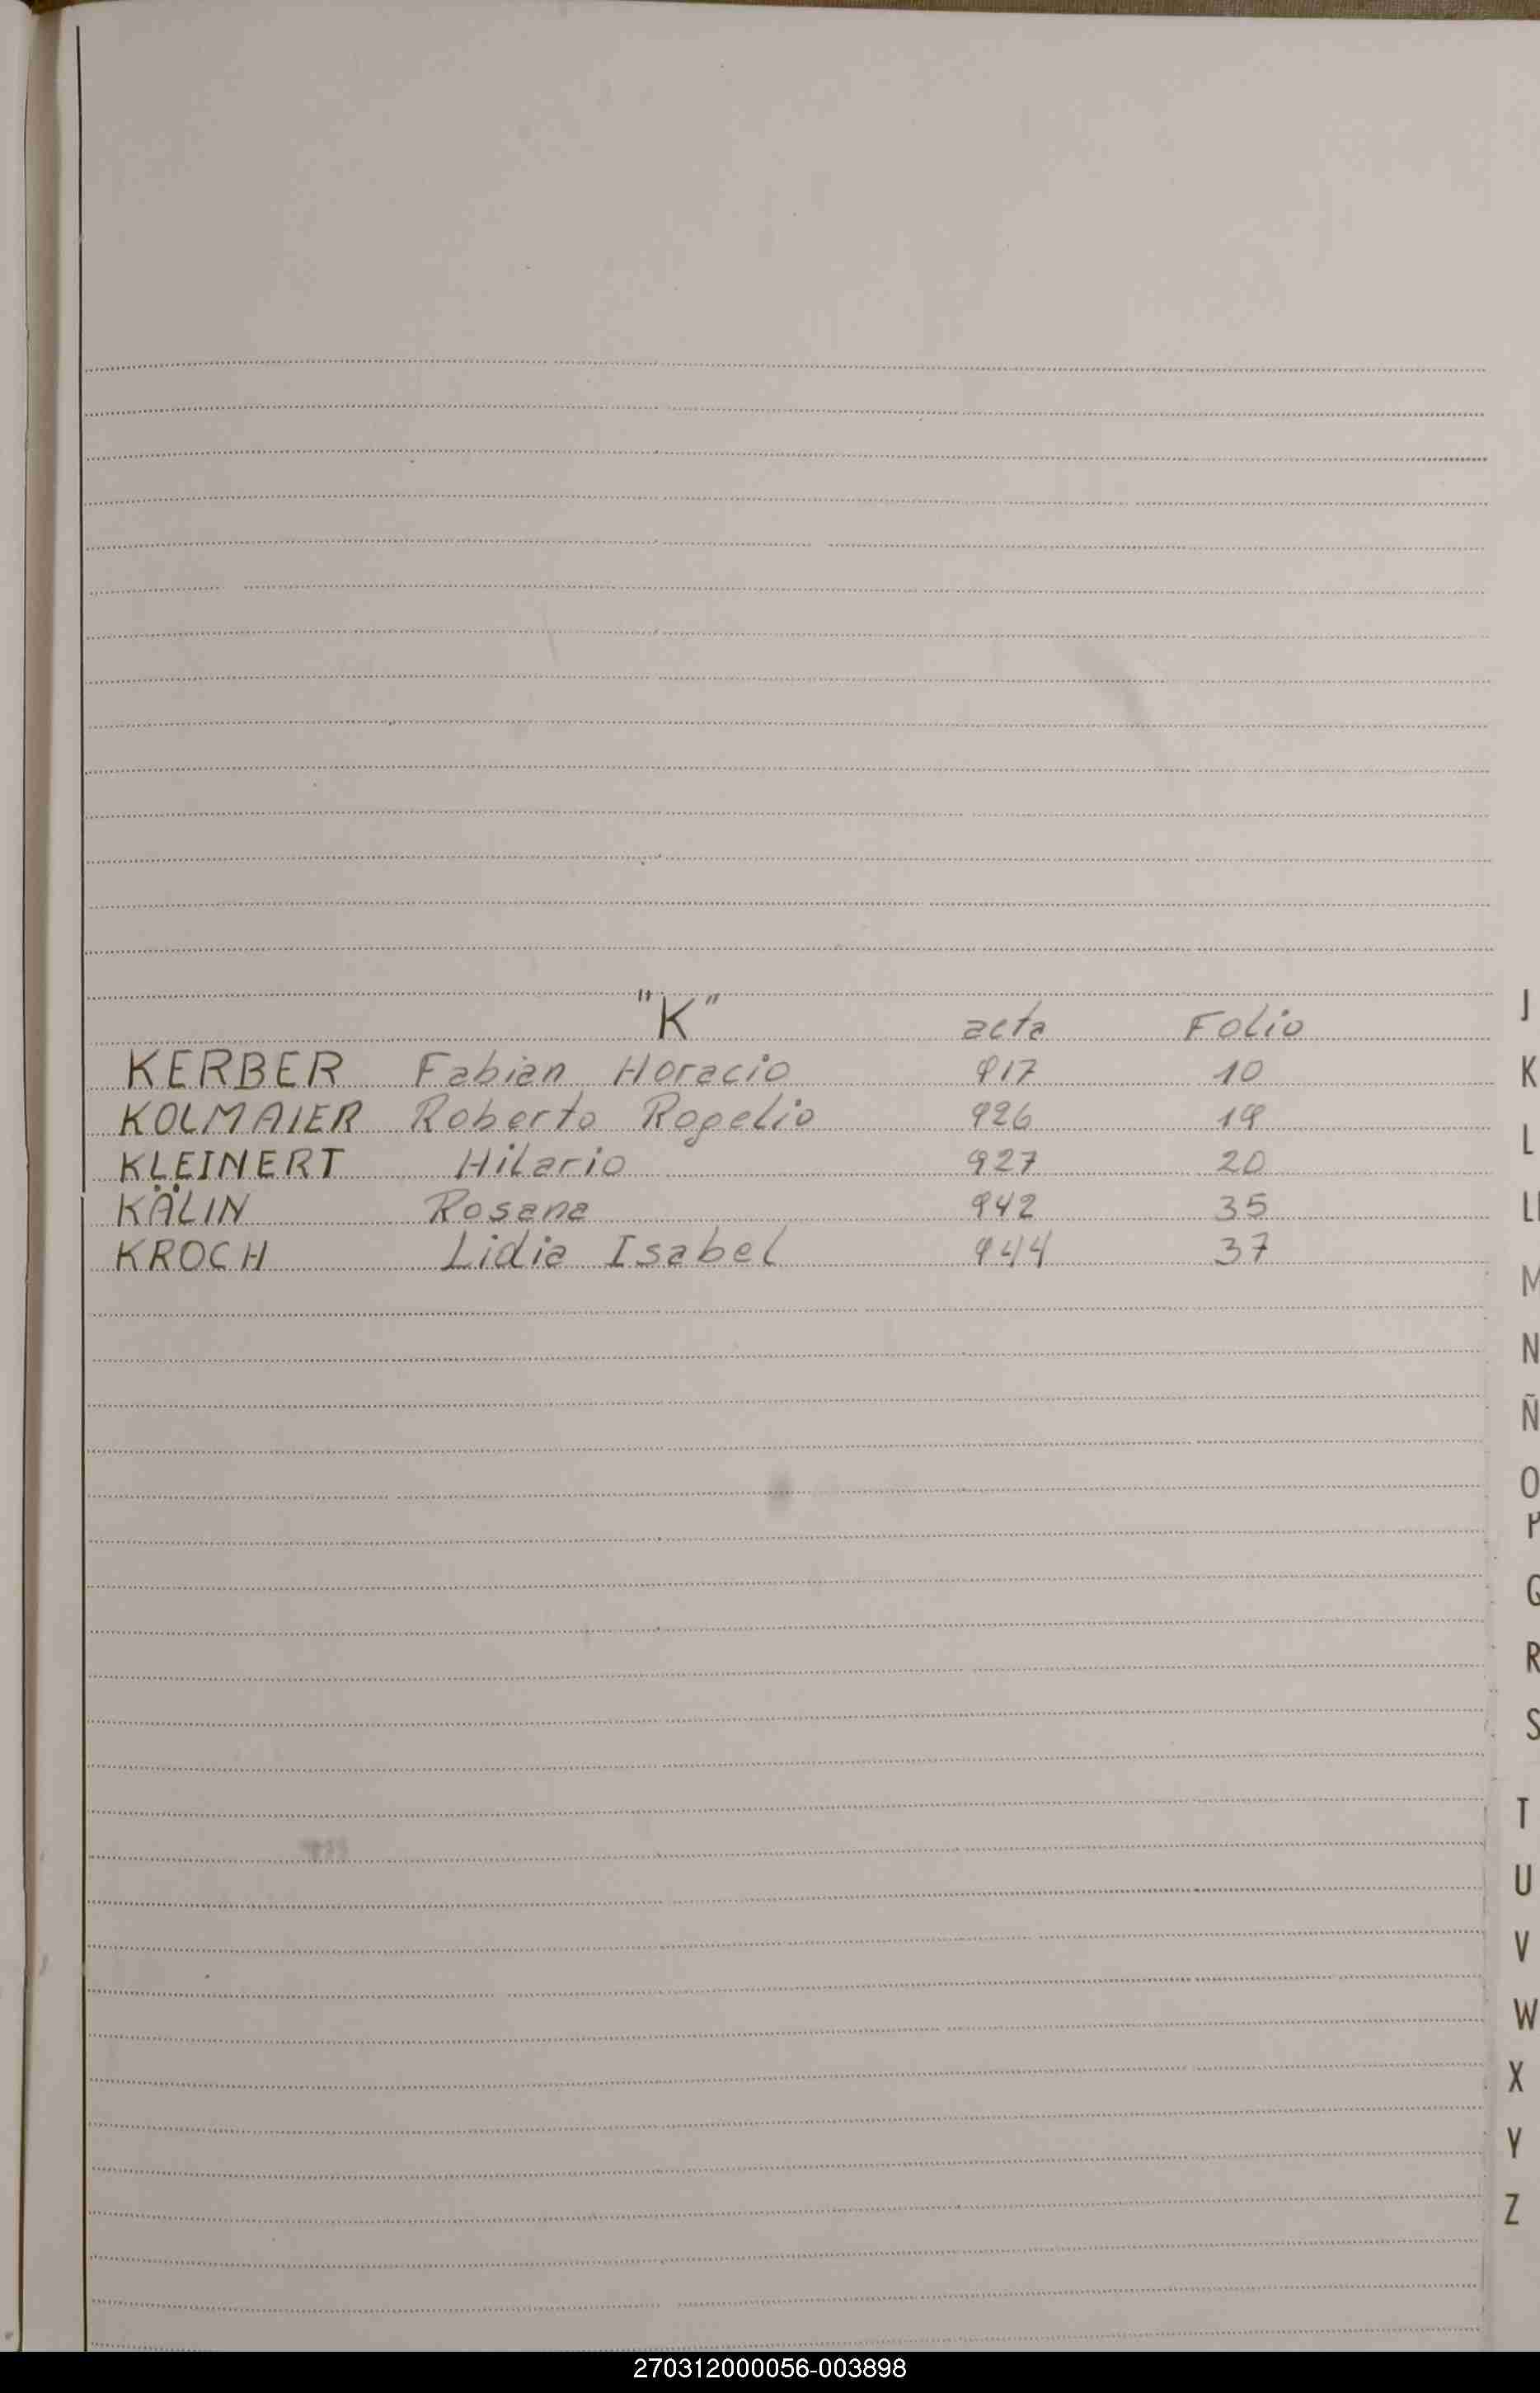 "K" acta Folio
KERBER Fabian Horacio 917 10
KOLMAIER Roberto Rogelio 926 19
KLEINERT Hilario 927 20
KÄLIN Rosana 942 35
KROCH Lidia Isabel 944 37
J
K
L
Ll
M
N
Ñ
O
P
Q
R
S
T
U
V
W
X
Y
Z
270312000056-003898